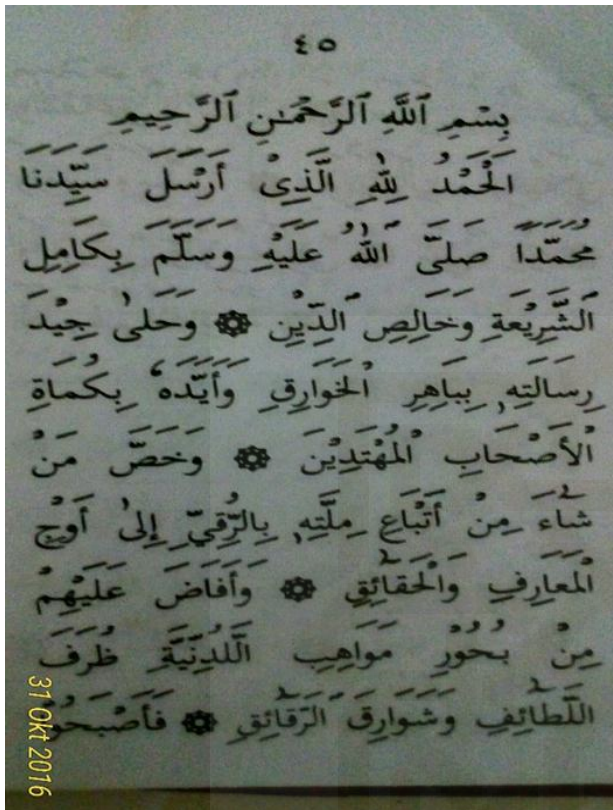 ٤٥
بِسْمِ ٱللَّهِ ٱلرَّحْمَـٰنِ ٱلرَّحِيمِ
اَلْحَمْدُ لِلّٰهِ الَّذِىْ أَرْسَلَ سَيِّدَنَا
مُحَمَّدًا صَلَّى اللّٰهُ عَلَيْهِ وَسَلَّمَ بِكَامِلِ
الشَّرِيْعَةِ وَخَالِصِ الدِّيْنِ ۞ وَحَلَىٰ جِيْدَ
رِسَالَتِهٖ بِبَاهِرِ الْخَوَارِقِ وَأَيَّدَهٗ بِكُمَاةِ
الْأَصْحَابِ الْمُهْتَدِيْنَ ۞ وَخَصَّ مَنْ
شَآءَ مِنْ أَتْبَاعِ مِلَّتِهٖ بِالرُّقِيِّ إِلىٰ أَوْجِ
الْمَعَارِفِ وَالْحَقَآئِقِ ۞ وَأَفَاضَ عَلَيْهِمْ
مِنْ بُحُوْرِ مَوَاهِبِ اللَّدُنِّيَّةِ ظُرَفَ
اللَّطَآئِفِ وَشَوَارِقَ الرَّقَآئِقِ ۞ فَأَصْبَحُوْ
31 Okt 2016